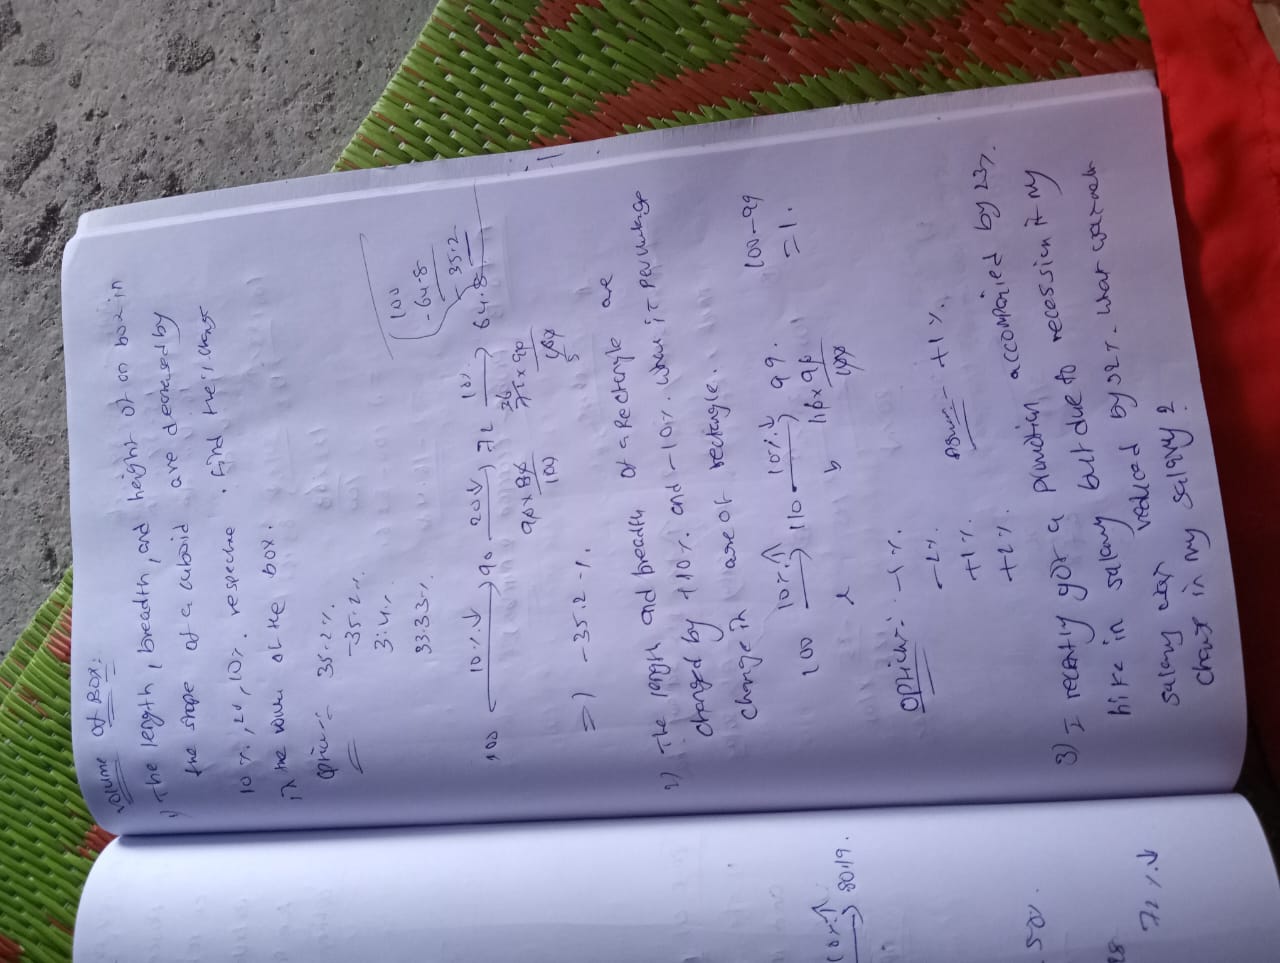 Volume of BOX:
1) The length, breadth, and height of on box in
the shape of a cuboid are decreased by
10 %, 20, 10% respective . find the % chang
in the volum of the box.
Option:- 35.2%
-35.2%
3.4%
33.33%
100
-64.8
35.2
100 10%↓ 90 20↓ 72 10% 64.8
90 x 80
100
72 x 90
100
=) -35.2 %.
2) The length and breadth of a Rectangle are
changed by +10% and -10%. what is percentage
change in are of rectangle.
100 10%↑ 110 10%↓ 99.
100-99
= 1.
l b 110 x 90
100
Option:- -1%
-2%
+1%
+2%
+1%.
3) I recently got a promotion accompanied by 23%.
hike in salary but due to recession it my
salary was reduced by 32%. what
chang in my salary?
10%↑ 80.19.
50%.
72%↓